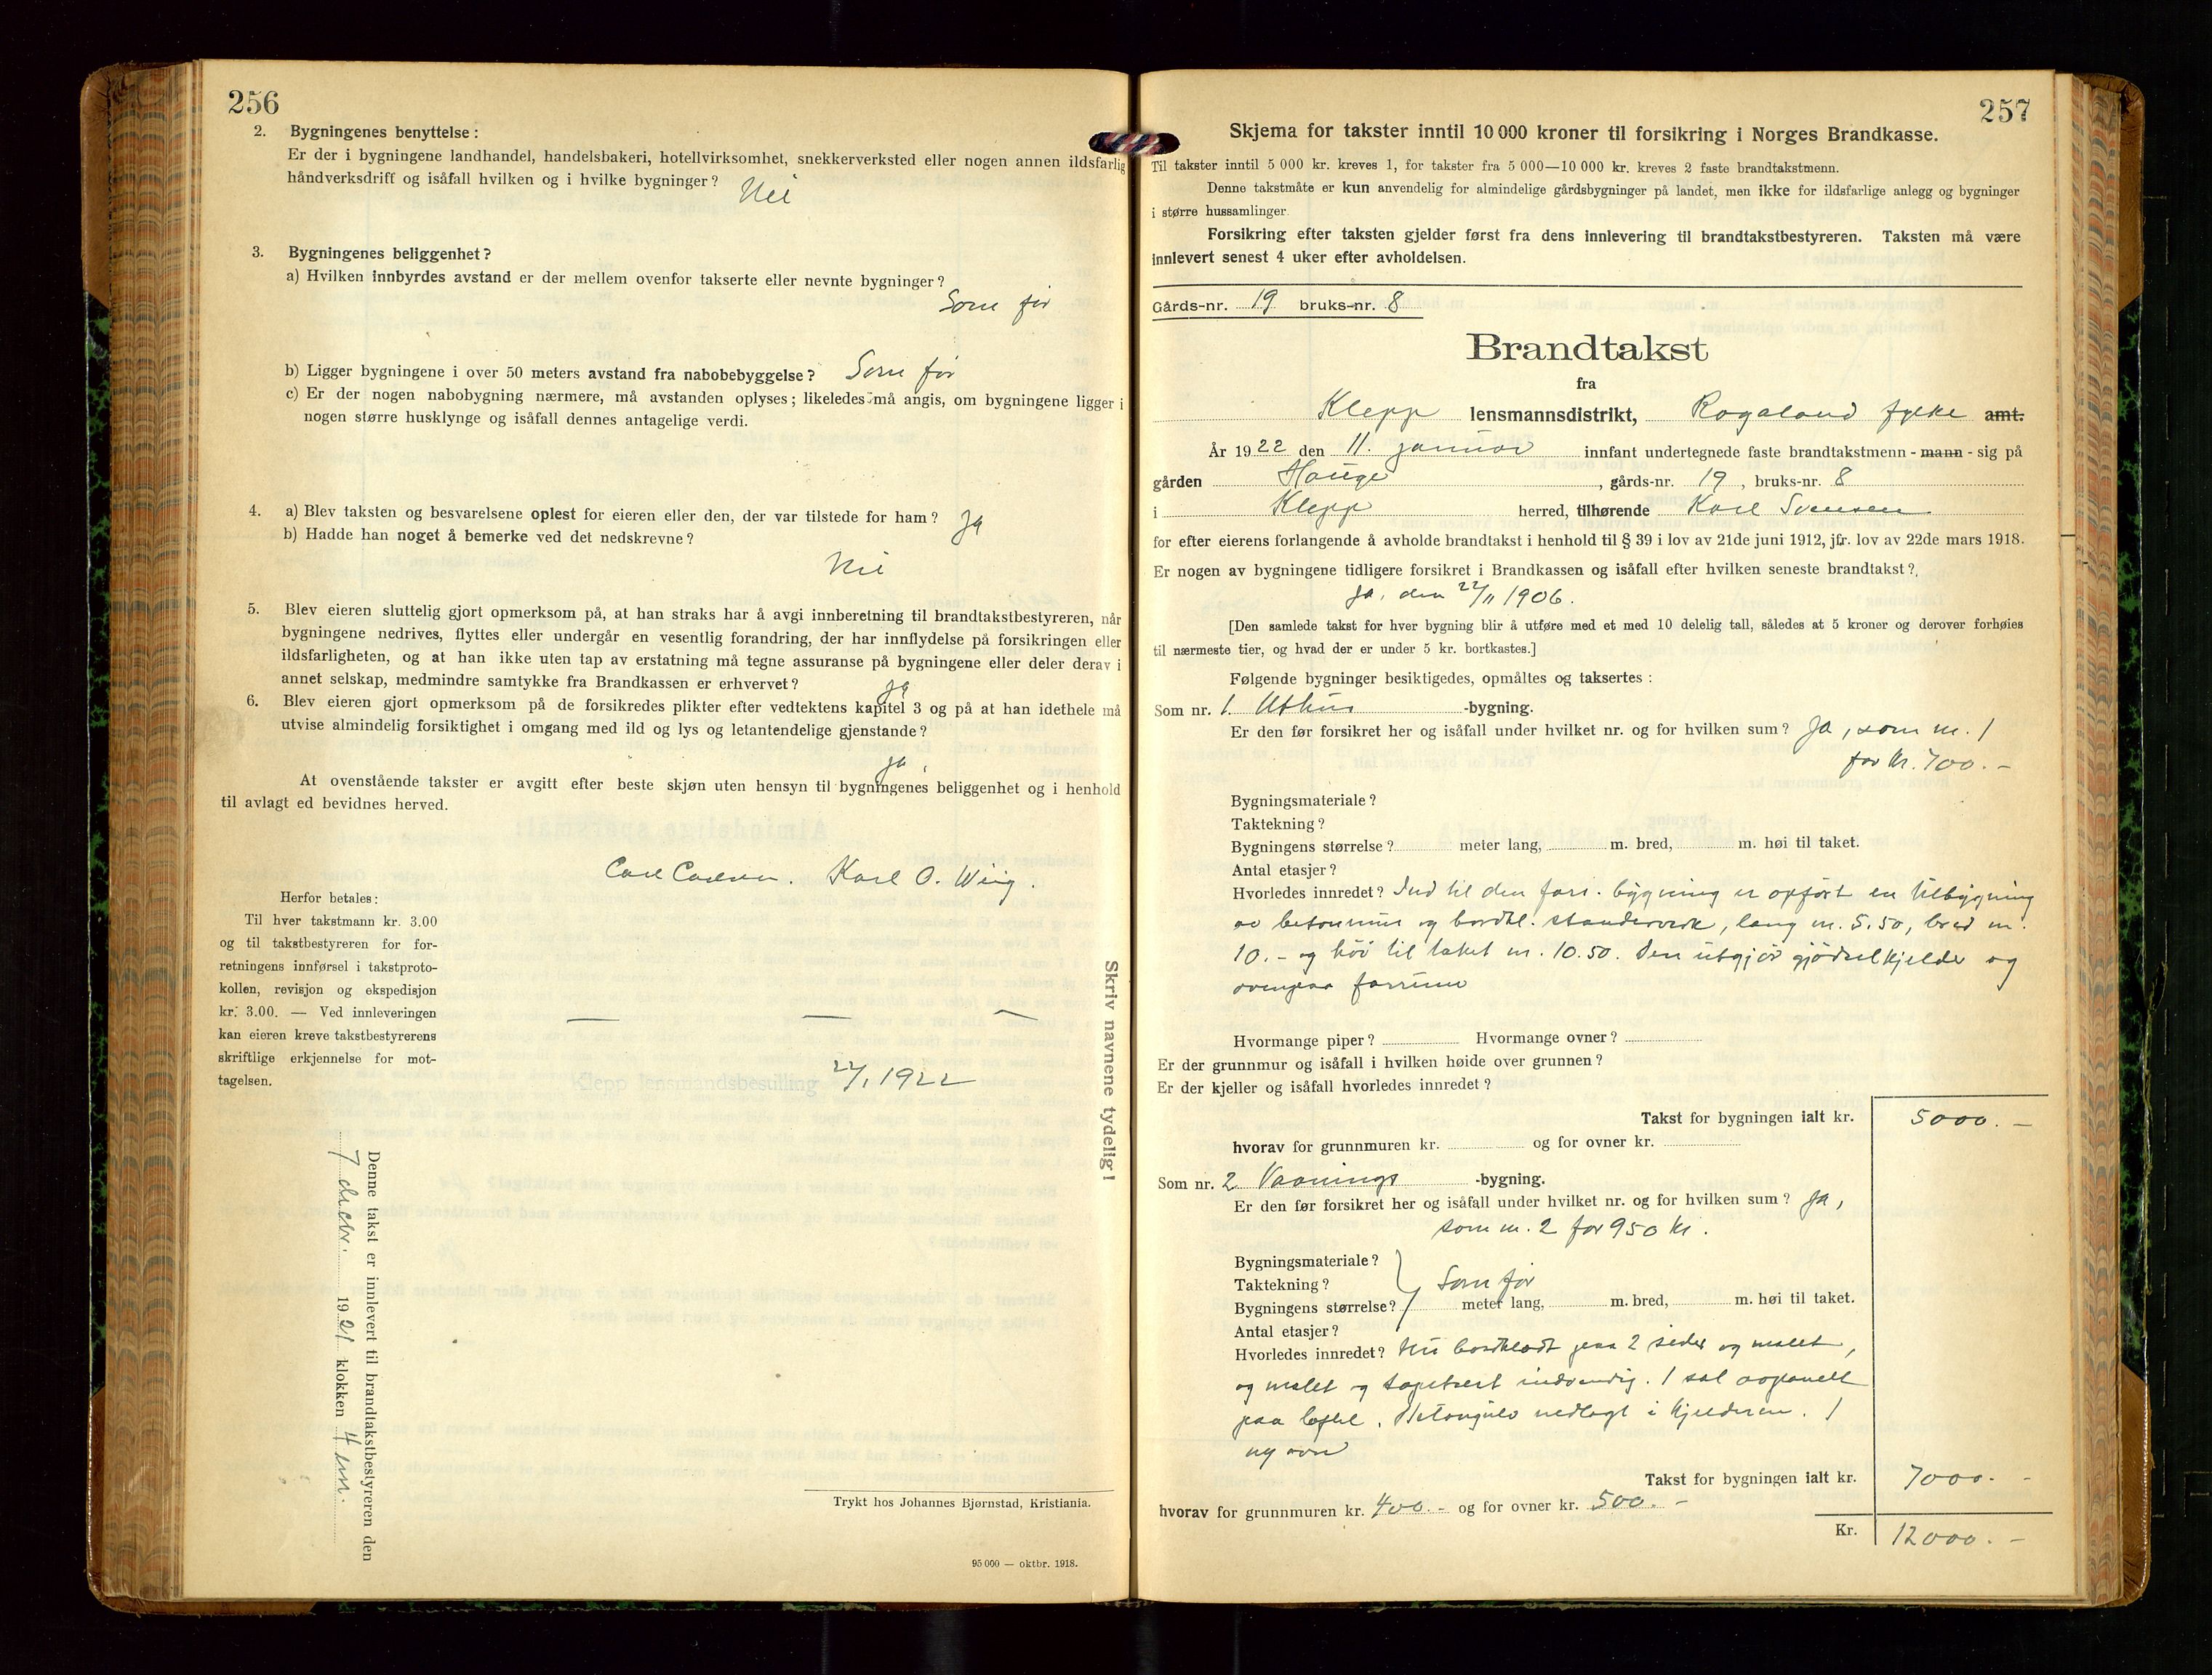 256
2. Bygningenes benyttelse:
Er der i bygningene landhandel, handelsbakeri, hotellvirksomhet, snekkerverksted eller nogen annen ildsfarlig
håndverksdrift og isåfall hvilken og i hvilke bygninger? Nei
3. Bygningenes beliggenhet?
a) Hvilken innbyrdes avstand er der mellem ovenfor takserte eller nevnte bygninger?
Som før
b) Ligger bygningene i over 50 meters avstand fra nabobebyggelse? Som før
c) Er der nogen nabobygning nærmere, må avstanden oplyses; likeledes må angis, om bygningene ligger i
nogen større husklynge og isåfall dennes antagelige verdi.
4. a) Blev taksten og besvarelsene oplest for eieren eller den, der var tilstede for ham? Ja
b) Hadde han noget å bemerke ved det nedskrevne?
Nei
5. Blev eieren sluttelig gjort opmerksom på, at han straks har å avgi innberetning til brandtakstbestyreren, når
bygningene nedrives, flyttes eller undergår en vesentlig forandring, der har innflydelse på forsikringen eller
ildsfarligheten, og at han ikke uten tap av erstatning må tegne assuranse på bygningene eller deler derav i
annet selskap, medmindre samtykke fra Brandkassen er erhvervet? Ja
6. Blev eieren gjort opmerksom på de forsikredes plikter efter vedtektens kapitel 3 og på at han idethele må
utvise almindelig forsiktighet i omgang med ild og lys og letantendelige gjenstande?
Ja.
At ovenstående takster er avgitt efter beste skjøn uten hensyn til bygningenes beliggenhet og i henhold
til avlagt ed bevidnes herved.
Carl Carlsen. Karl O. Wiig.
Herfor betales:
Til hver takstmann kr. 3.00
og til takstbestyreren for for-
retningens innførsel i takstproto-
kollen, revisjon og ekspedisjon
kr. 3.00. — Ved innleveringen
kan eieren kreve takstbestyrerens
skriftlige erkjennelse for mot-
tagelsen.
Klepp lensmandsbestilling 27/1 1922
Skriv navnene tydelig!
Denne takst er innlevert til brandtakstbestyreren den
7 decbr. 1921 klokken 4 em.
Trykt hos Johannes Bjørnstad, Kristiania.
95 000 — oktbr. 1918.
257
Skjema for takster inntil 10 000 kroner til forsikring i Norges Brandkasse.
Til takster inntil 5 000 kr. kreves 1, for takster fra 5 000—10 000 kr. kreves 2 faste brandtakstmenn.
Denne takstmåte er kun anvendelig for almindelige gårdsbygninger på landet, men ikke for ildsfarlige anlegg og bygninger
i større hussamlinger.
Forsikring efter taksten gjelder først fra dens innlevering til brandtakstbestyreren. Taksten må være
innlevert senest 4 uker efter avholdelsen.
Gårds-nr. 19 bruks-nr. 8
Brandtakst
fra
Klepp lensmannsdistrikt, Rogaland fylke amt.
År 1922 den 11. januar innfant undertegnede faste brandtakstmenn - mann - sig på
gården Hauge, gårds-nr. 19, bruks-nr. 8
i Klepp herred, tilhørende Karl Svensen
for efter eierens forlangende å avholde brandtakst i henhold til § 39 i lov av 21de juni 1912, jfr. lov av 22de mars 1918.
Er nogen av bygningene tidligere forsikret i Brandkassen og isåfall efter hvilken seneste brandtakst?
Ja, den 22/11 1906.
[Den samlede takst for hver bygning blir å utføre med et med 10 delelig tall, således at 5 kroner og derover forhøies
til nærmeste tier, og hvad der er under 5 kr. bortkastes.]
Følgende bygninger besiktigedes, opmåltes og taksertes:
Som nr. 1. Uthus -bygning.
Er den før forsikret her og isåfall under hvilket nr. og for hvilken sum? Ja, som nr. 1
for kr. 700.-
Bygningsmateriale?
Taktekning?
Bygningens størrelse? meter lang, m. bred, m. høi til taket.
Antal etasjer?
Hvorledes innredet? Ind til den fors. bygning er opført en tilbygning
av betonmur og bordkl. standerverk, lang m. 5.50, bred m.
10.- og høi til taket m. 10.50. Den utgjør gjødselkjelder og
ovenpaa forrum
Hvormange piper? Hvormange ovner?
Er der grunnmur og isåfall i hvilken høide over grunnen?
Er der kjeller og isåfall hvorledes innredet?
Takst for bygningen ialt kr. 5000.-
hvorav for grunnmuren kr. og for ovner kr.
Som nr. 2 Vaanings -bygning.
Er den før forsikret her og isåfall under hvilket nr. og for hvilken sum? Ja,
som nr. 2 for 950 kr.
Bygningsmateriale?
Taktekning? Som før
Bygningens størrelse? meter lang, m. bred, m. høi til taket.
Antal etasjer?
Hvorledes innredet? Nu bordklædt paa 2 sider og malet,
og malet og tapetsert indvendig. 1 sal avpanelt
paa loftet. Betongulv nedlagt i kjelderen. 1
ny ovn
Takst for bygningen ialt kr. 7000.-
hvorav for grunnmuren kr. 400.- og for ovner kr. 500.-
Kr. 12000.-